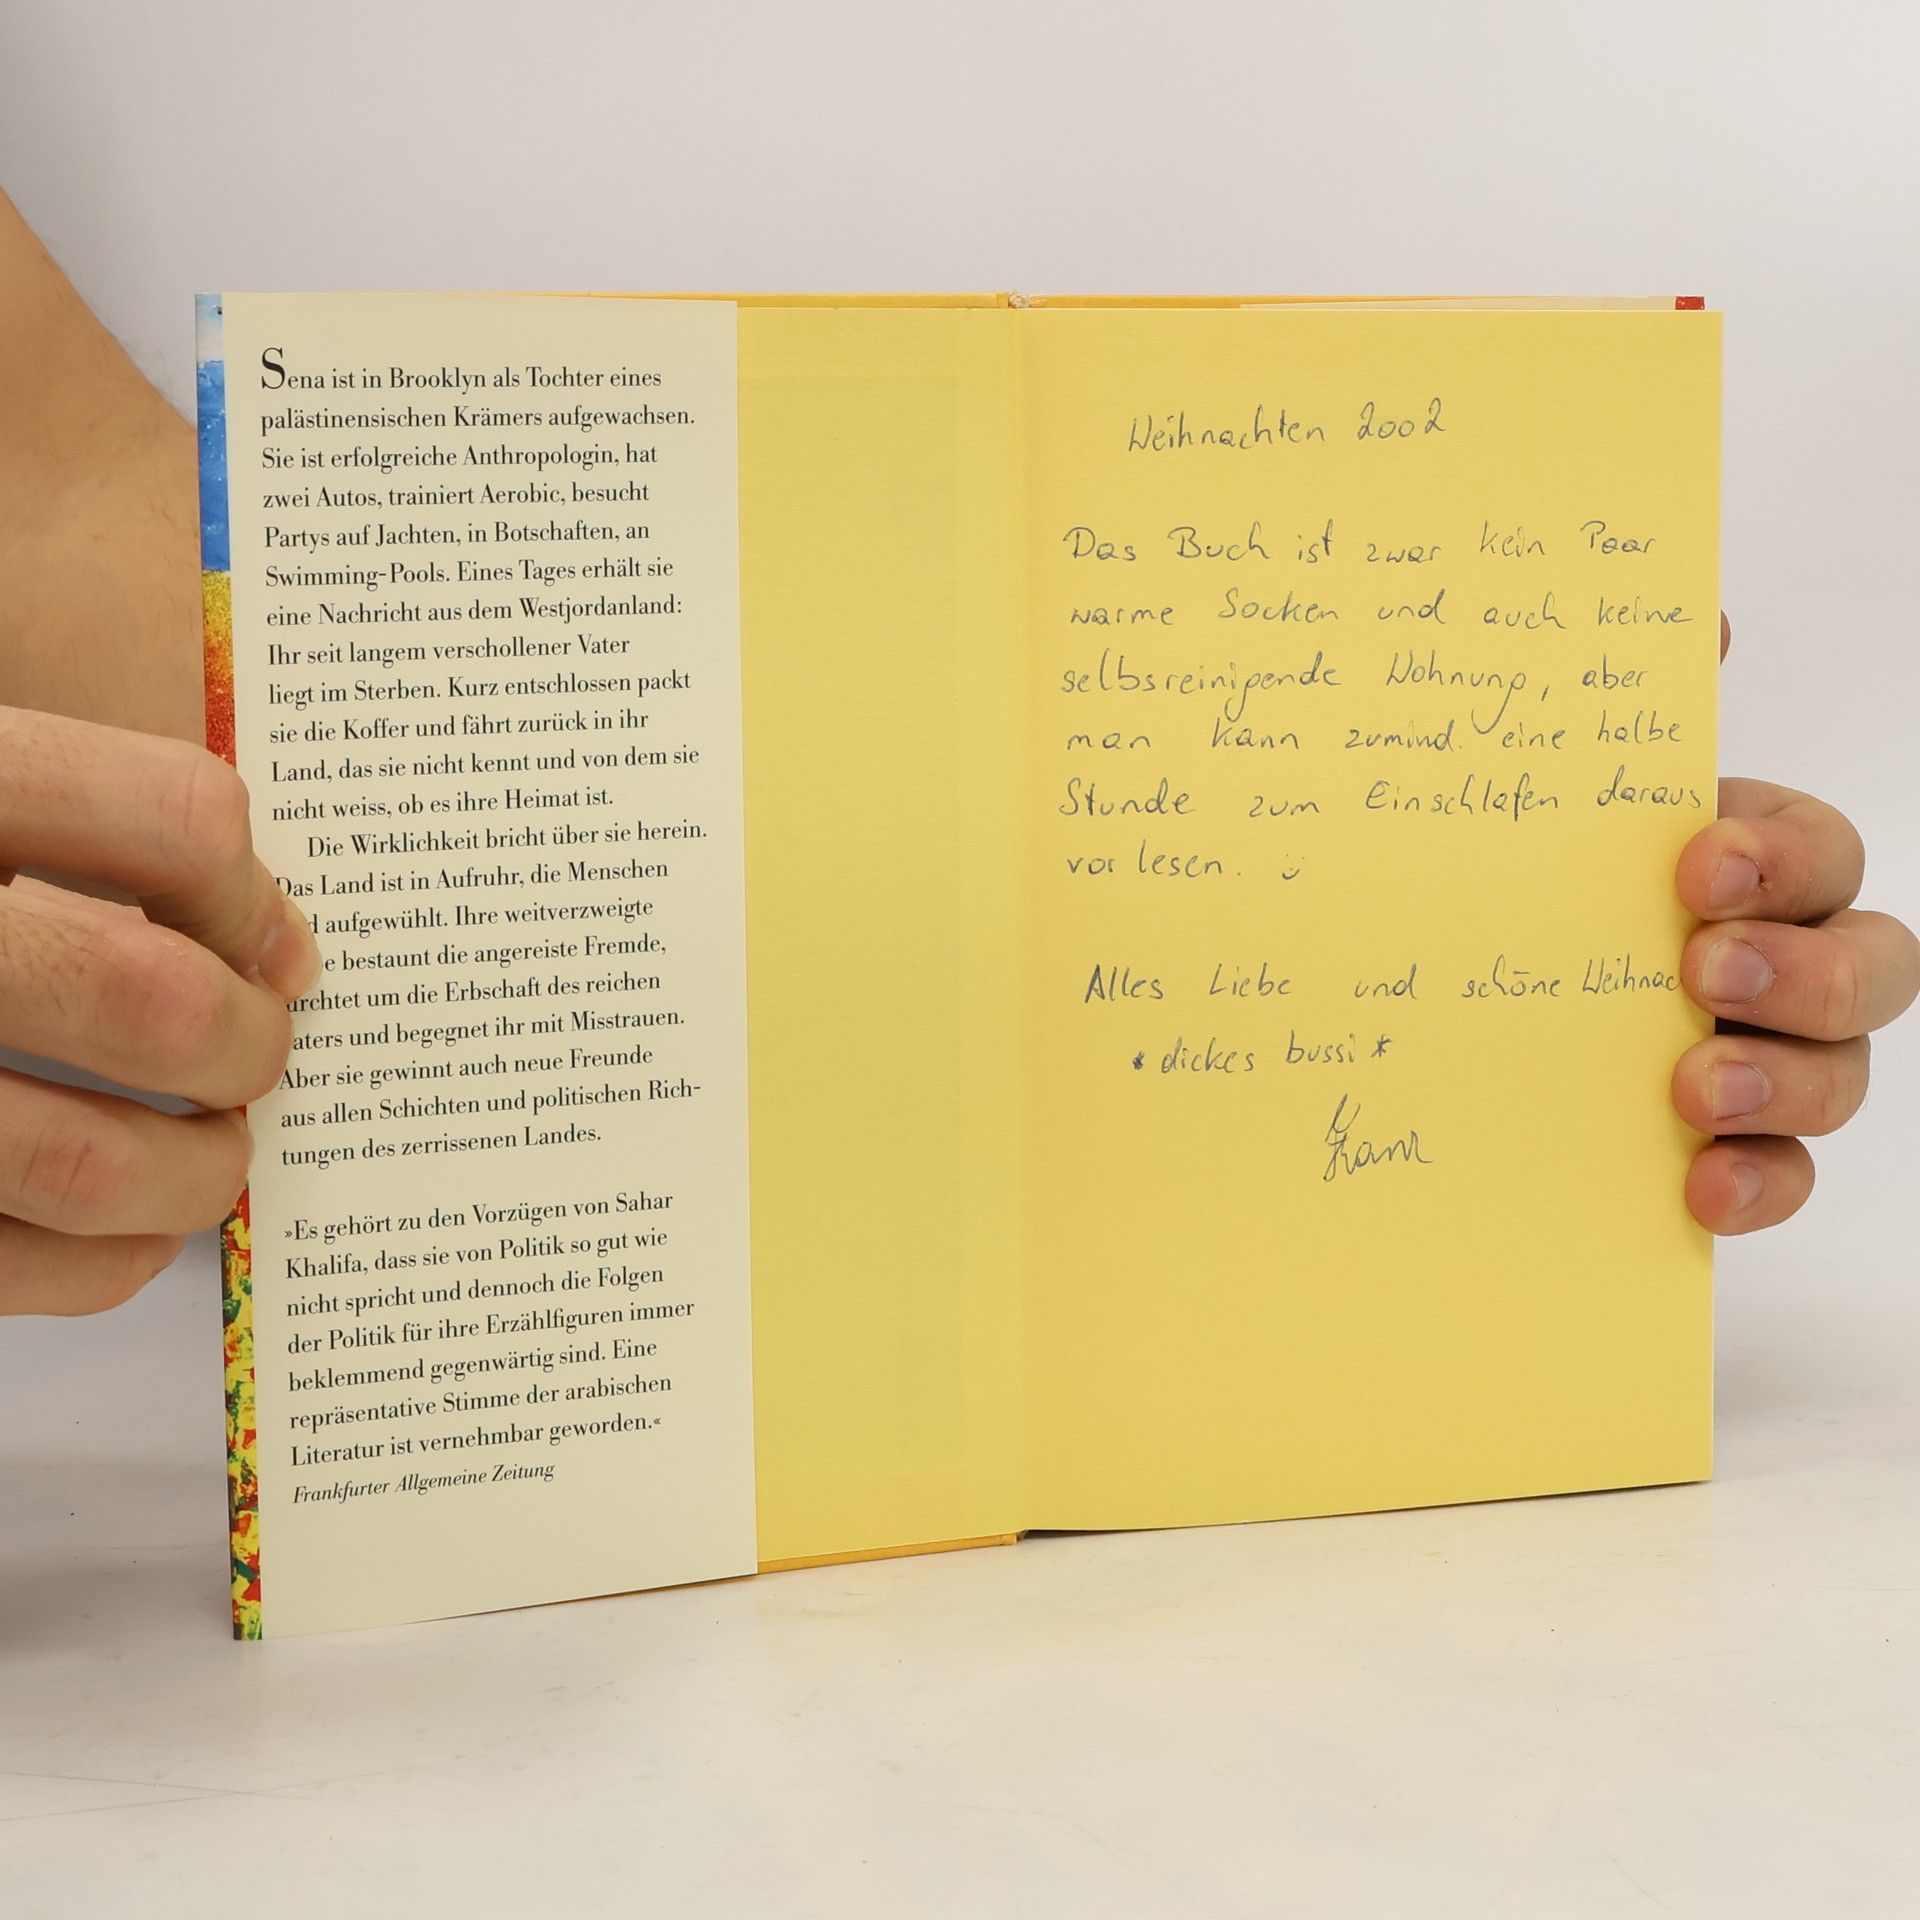 Sena ist in Brooklyn als Tochter eines
palästinensischen Krämers aufgewachsen.
Sie ist erfolgreiche Anthropologin, hat
zwei Autos, trainiert Aerobic, besucht
Partys auf Jachten, in Botschaften, an
Swimming-Pools. Eines Tages erhält sie
eine Nachricht aus dem Westjordanland:
Ihr seit langem verschollener Vater
liegt im Sterben. Kurz entschlossen packt
sie die Koffer und fährt zurück in ihr
Land, das sie nicht kennt und von dem sie
nicht weiss, ob es ihre Heimat ist.
Die Wirklichkeit bricht über sie herein.
Das Land ist in Aufruhr, die Menschen
d aufgewühlt. Ihre weitverzweigte
e bestaunt die angereiste Fremde,
urchtet um die Erbschaft des reichen
aters und begegnet ihr mit Misstrauen.
Aber sie gewinnt auch neue Freunde
aus allen Schichten und politischen Rich-
tungen des zerrissenen Landes.
»Es gehört zu den Vorzügen von Sahar
Khalifa, dass sie von Politik so gut wie
nicht spricht und dennoch die Folgen
der Politik für ihre Erzählfiguren immer
beklemmend gegenwärtig sind. Eine
repräsentative Stimme der arabischen
Literatur ist vernehmbar geworden.«
Frankfurter Allgemeine Zeitung
Weihnachten 2002
Das Buch ist zwar kein Paar
warme Socken und auch keine
selbsreinigende Wohnung, aber
man kann zumind. eine halbe
Stunde zum Einschlafen daraus
vor lesen. ü
Alles Liebe und schöne Weihnac
* dickes bussi *